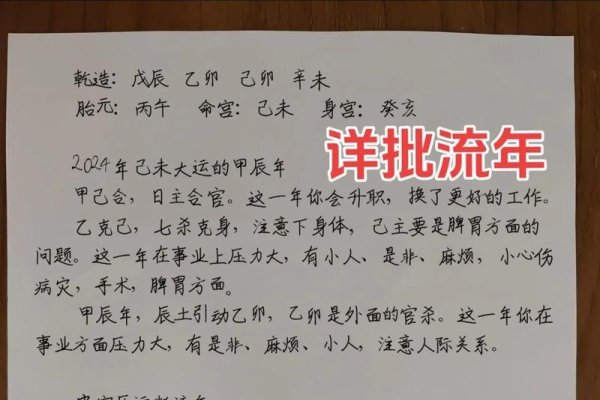 乾造：戊辰 乙卯 己卯 辛未
胎元：丙午 命宫：己未 身宫：癸亥
详批流年
2024年己未大运的甲辰年
甲己合，日主合官。这一年你会升职，换了更好的工作。
乙克己，七杀克身，注意下身体，己主要是脾胃方面的
问题。这一年在事业上压力大，有小人、是非、麻烦，小心伤
病灾，手术，脾胃方面。
甲辰年，辰土引动乙卯，乙卯是外面的官杀。这一年你在
事业方面压力大，有是非、麻烦、小人，注意人际关系。